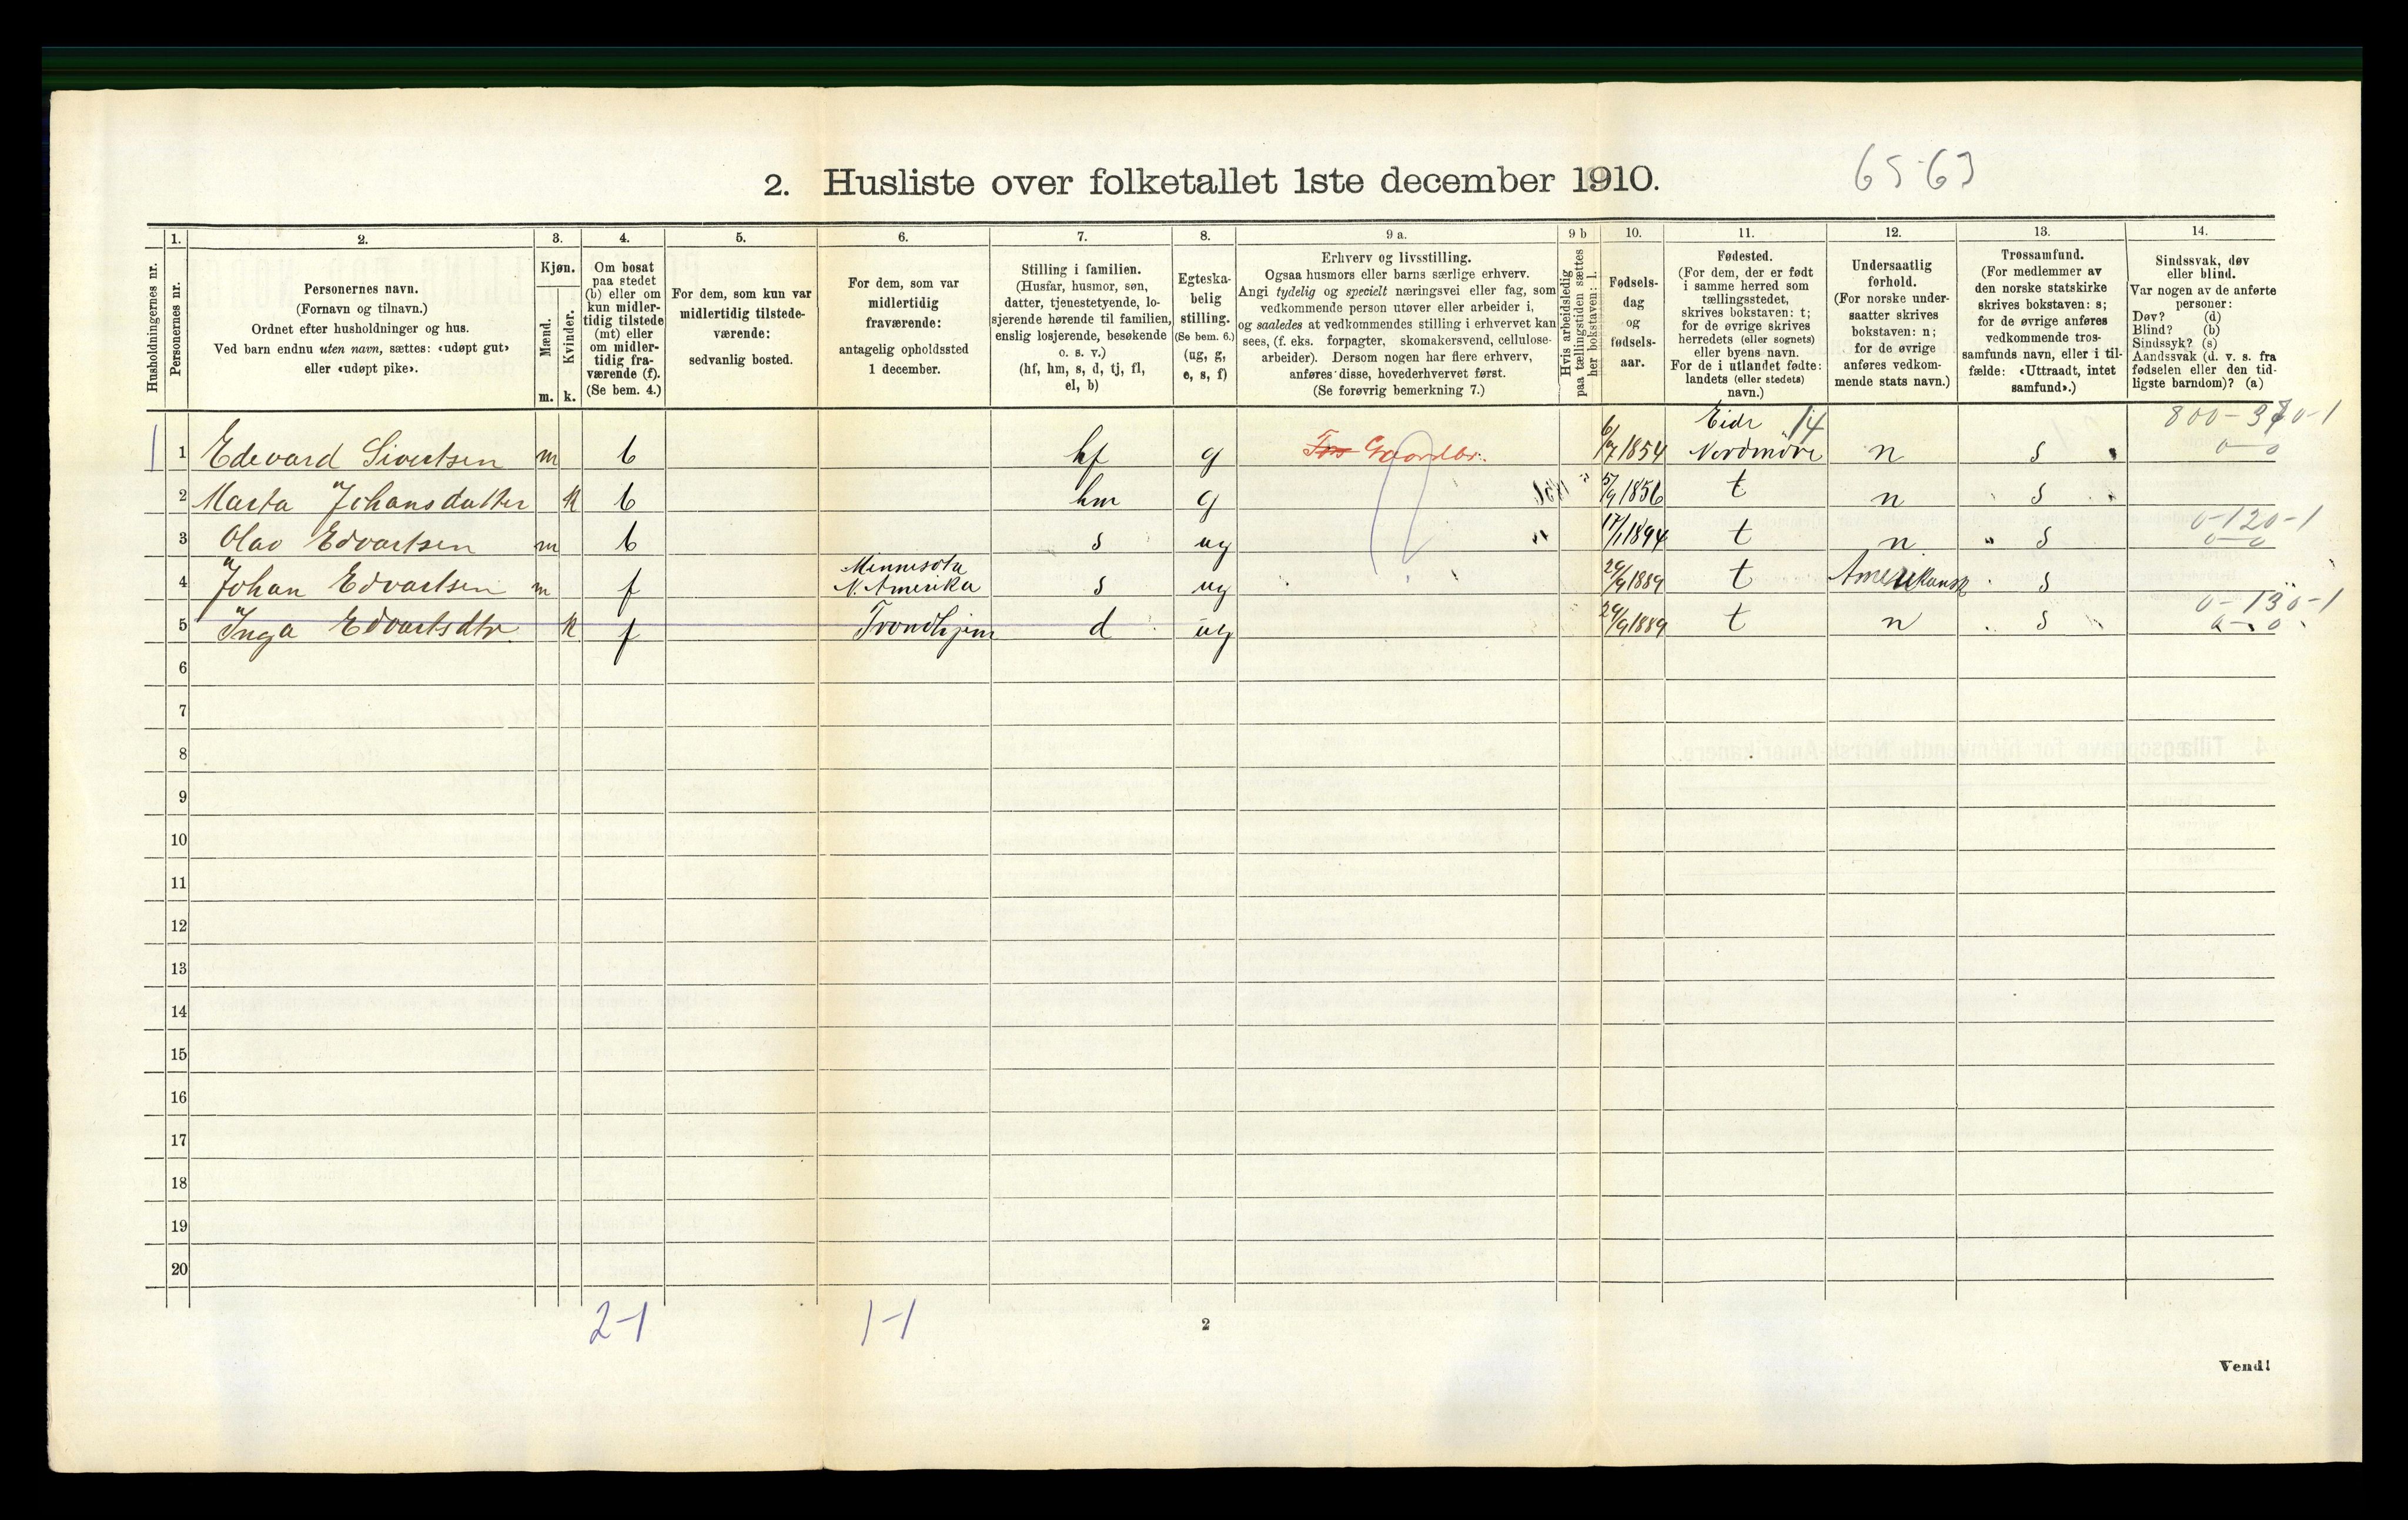 65-63
2. Husliste over folketallet 1ste december 1910.
Husholdningernes nr.
1. Personernes nr.
2. Personernes navn.
(Fornavn og tilnavn.)
Ordnet efter husholdninger og hus.
Ved barn endnu uten navn, sættes: «udøpt gut»
eller «udøpt pike».
3. Kjøn.
Mænd. Kvinder.
m. k.
4. Om bosat
paa stedet
(b) eller om
kun midler-
tidig tilstede
(mt) eller
om midler-
tidig fra-
værende (f).
(Se bem. 4.)
5. For dem, som kun var
midlertidig tilstede-
værende:
sedvanlig bosted.
6. For dem, som var
midlertidig
fraværende:
antagelig opholdssted
1 december.
7. Stilling i familien.
(Husfar, husmor, søn,
datter, tjenestetyende, lo-
sjerende hørende til familien,
enslig losjerende, besøkende
o. s. v.)
(hf, hm, s, d, tj, fl,
el, b)
8. Egteska-
belig
stilling.
(Se bem. 6.)
(ug, g,
e, s, f)
9 a. Erhverv og livsstilling.
Ogsaa husmors eller barns særlige erhverv.
Angi tydelig og specielt næringsvei eller fag, som
vedkommende person utøver eller arbeider i,
og saaledes at vedkommendes stilling i erhvervet kan
sees, (f. eks. forpagter, skomakersvend, cellulose-
arbeider). Dersom nogen har flere erhverv,
anføres disse, hovederhvervet først.
(Se forøvrig bemerkning 7.)
9 b Hvis arbeidsledig
paa tællingstiden sættes
her bokstaven: l.
10. Fødsels-
dag
og
fødsels-
aar.
11. Fødested.
(For dem, der er født
i samme herred som
tællingsstedet,
skrives bokstaven: t;
for de øvrige skrives
herredets (eller sognets)
eller byens navn.
For de i utlandet fødte:
landets (eller stedets)
navn.)
12. Undersaatlig
forhold.
(For norske under-
saatter skrives
bokstaven: n;
for de øvrige
anføres vedkom-
mende stats navn.)
13. Trossamfund.
(For medlemmer av
den norske statskirke
skrives bokstaven: s;
for de øvrige anføres
vedkommende tros-
samfunds navn, eller i til-
fælde: «Uttraadt, intet
samfund».)
14. Sindssvak, døv
eller blind.
Var nogen av de anførte
personer:
Døv? (d)
Blind? (b)
Sindssyk? (s)
Aandssvak (d. v. s. fra
fødselen eller den tid-
ligste barndom)? (a)
1 1 Edevard Sivertsen m b hf g Gaardbr. 6/7 1854 Eide 14 Nordmøre n s 0-0
2 Marta Johansdatter k b hm g 5/9 1856 t n s
3 Olav Edvartsen m b s ug 17/1 1894 t n s 0-120-1 0-0
4 Johan Edvartsen m f Minnesota N. Amerika s ug 29/9 1889 t Amerikansk s
5 Inga Edvartsdtr k f Trondhjem d ug 29/9 1889 t n s 0-130-1 0-0
6
7
8
9
10
11
12
13
14
15
16
17
18
19
20
2-1 1-1
2
Vend!